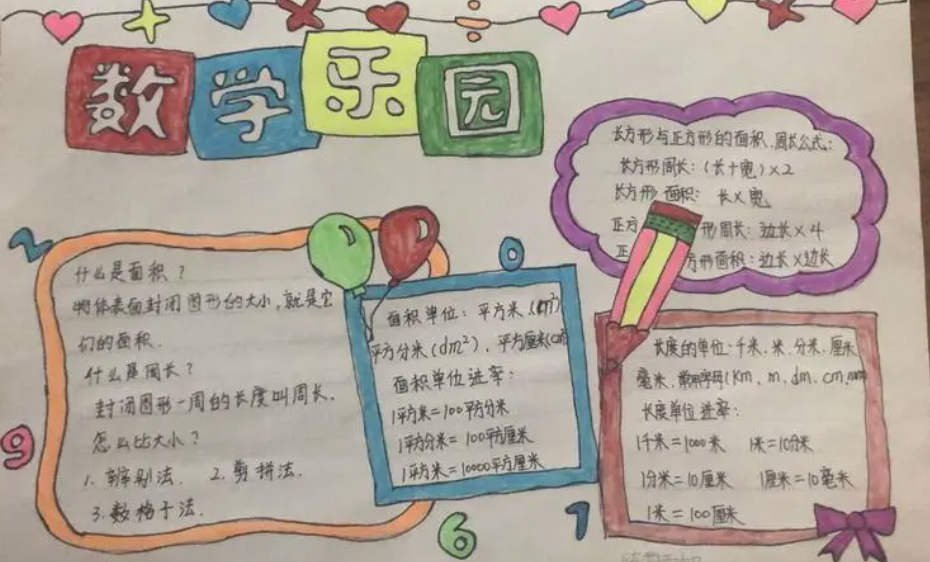 数学乐园
长方形与正方形的面积.周长公式:
长方形周长:(长+宽)×2
长方形 面积: 长×宽
正方 形周长: 边长×4
正 方形面积: 边长×边长
2
什么是面积?
物体表面封闭图形的大小,就是它
们的面积.
什么是周长?
封闭图形一周的长度叫周长.
怎么比大小?
1. 辨别法. 2. 剪拼法.
3. 数格子法.
9
0
面积单位: 平方米.(m²)
平方分米(dm²)、平方厘米(cm²)
面积单位进率:
1平方米=100平方分米
1平方分米=100平方厘米
1平方米=10000平方厘米
6
7
长度的单位:千米.米.分米.厘米
毫米.常用字母(Km、m、dm、cm、mm
长度单位进率:
1千米=1000米 1米=10分米
1分米=10厘米 1厘米=10毫米
1米=100厘米